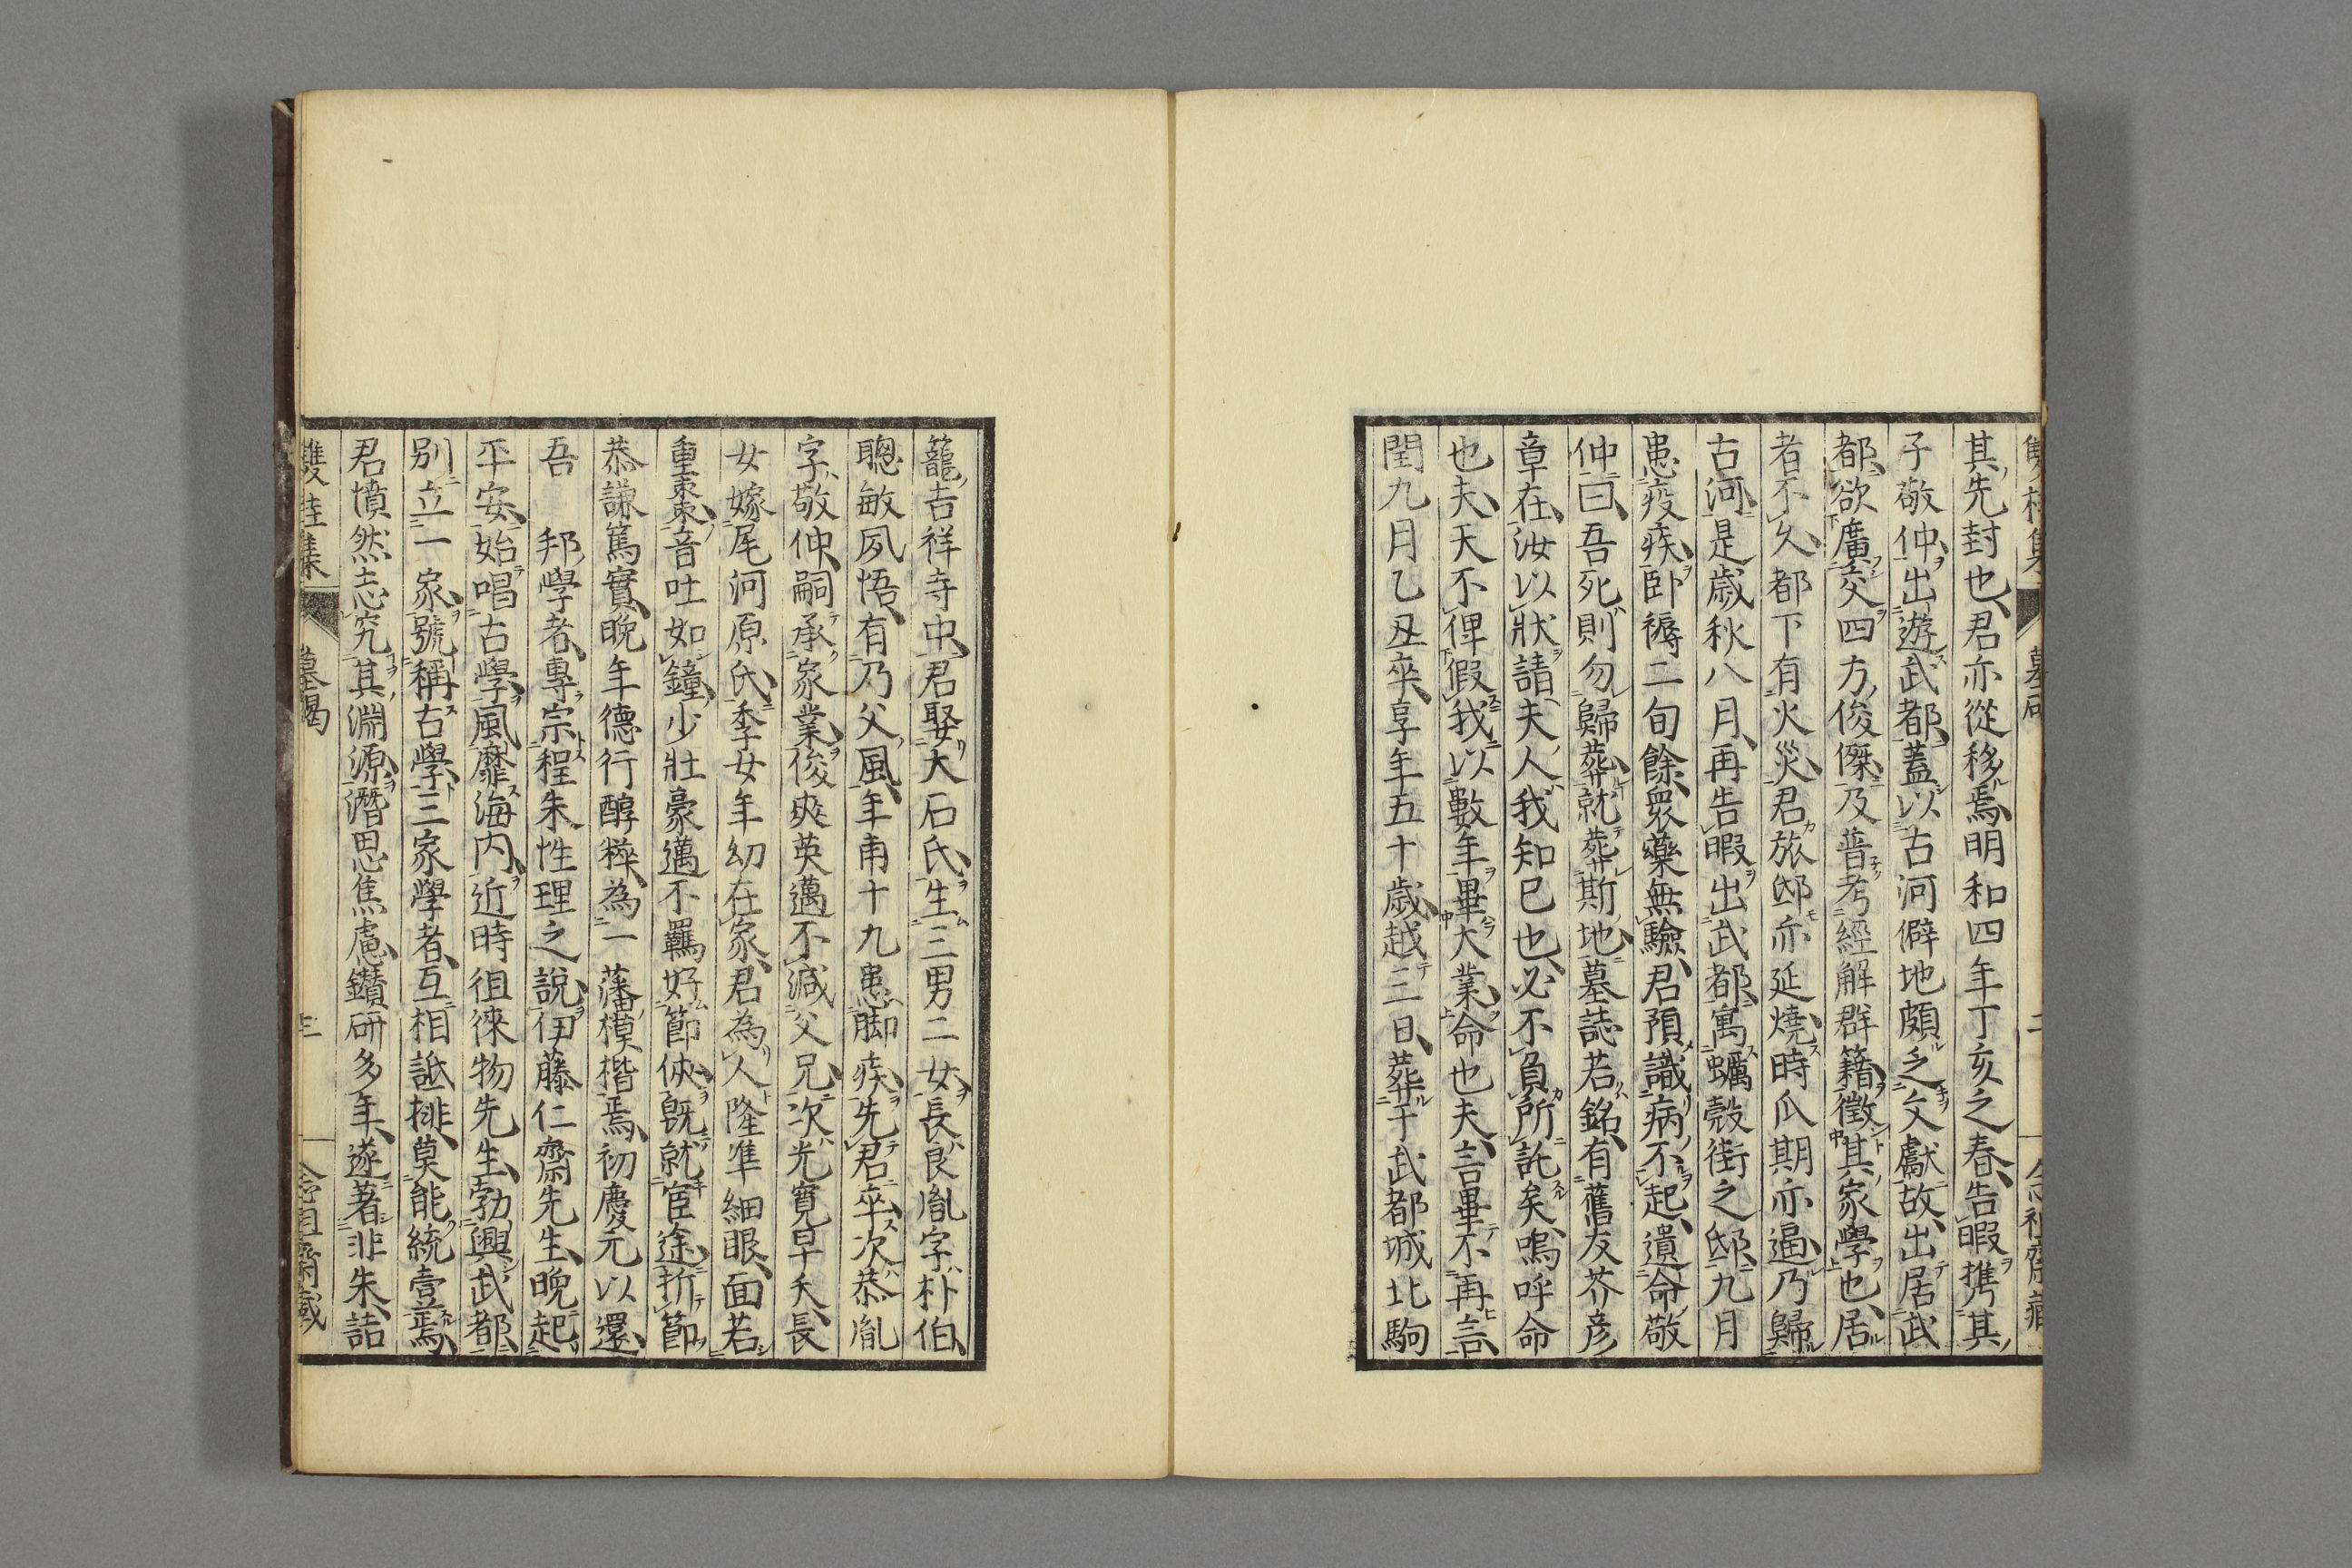 其先封也君亦從移焉明和四年丁亥之春告暇携其
子敬仲出遊武都蓋以古河僻地頗乏文獻故出居武
都欲廣交四方俊傑及普考經解群籍徵其家學也居
者不久都下有火災君旅邸亦延燒時瓜期亦逼乃歸
古河是歲秋八月再告暇出武都寓蠣殼街之邸九月
患疫疾臥褥二旬餘衆藥無驗君預識病不起遺命敬
仲曰吾死則勿歸葬就葬斯地墓誌若銘有舊友芥彥
章在汝以狀請夫人我知已也必不負所託矣嗚呼命
也夫天不俾假我以數年畢大業命也夫言畢不再言
閏九月乙丑卒享年五十歲越三日葬于武都城北駒
籠吉祥寺中君娶大石氏生三男二女長良胤字朴伯
聰敏夙悟有乃父風年甫十九患脚疾先君卒次恭胤
字敬仲嗣承家業俊爽英邁不減父兄次光寬早夭長
女嫁尾河原氏季女年幼在家君為人隆準細眼面若
重棗音吐如鐘少壯豪邁不羈好節俠既就宦途折節
恭謙篤實晚年德行醇粹為一藩模楷焉初慶元以還
吾　邦學者專宗程朱性理之說伊藤仁齋先生晚起
平安始唱古學風靡海內近時徂徠物先生勃興武都
別立一家號稱古學三家學者互相詆排莫能統壹焉
君憤然志究其淵源潛思焦慮鑽研多年遂著非朱詰
雙桂集　墓碣　三